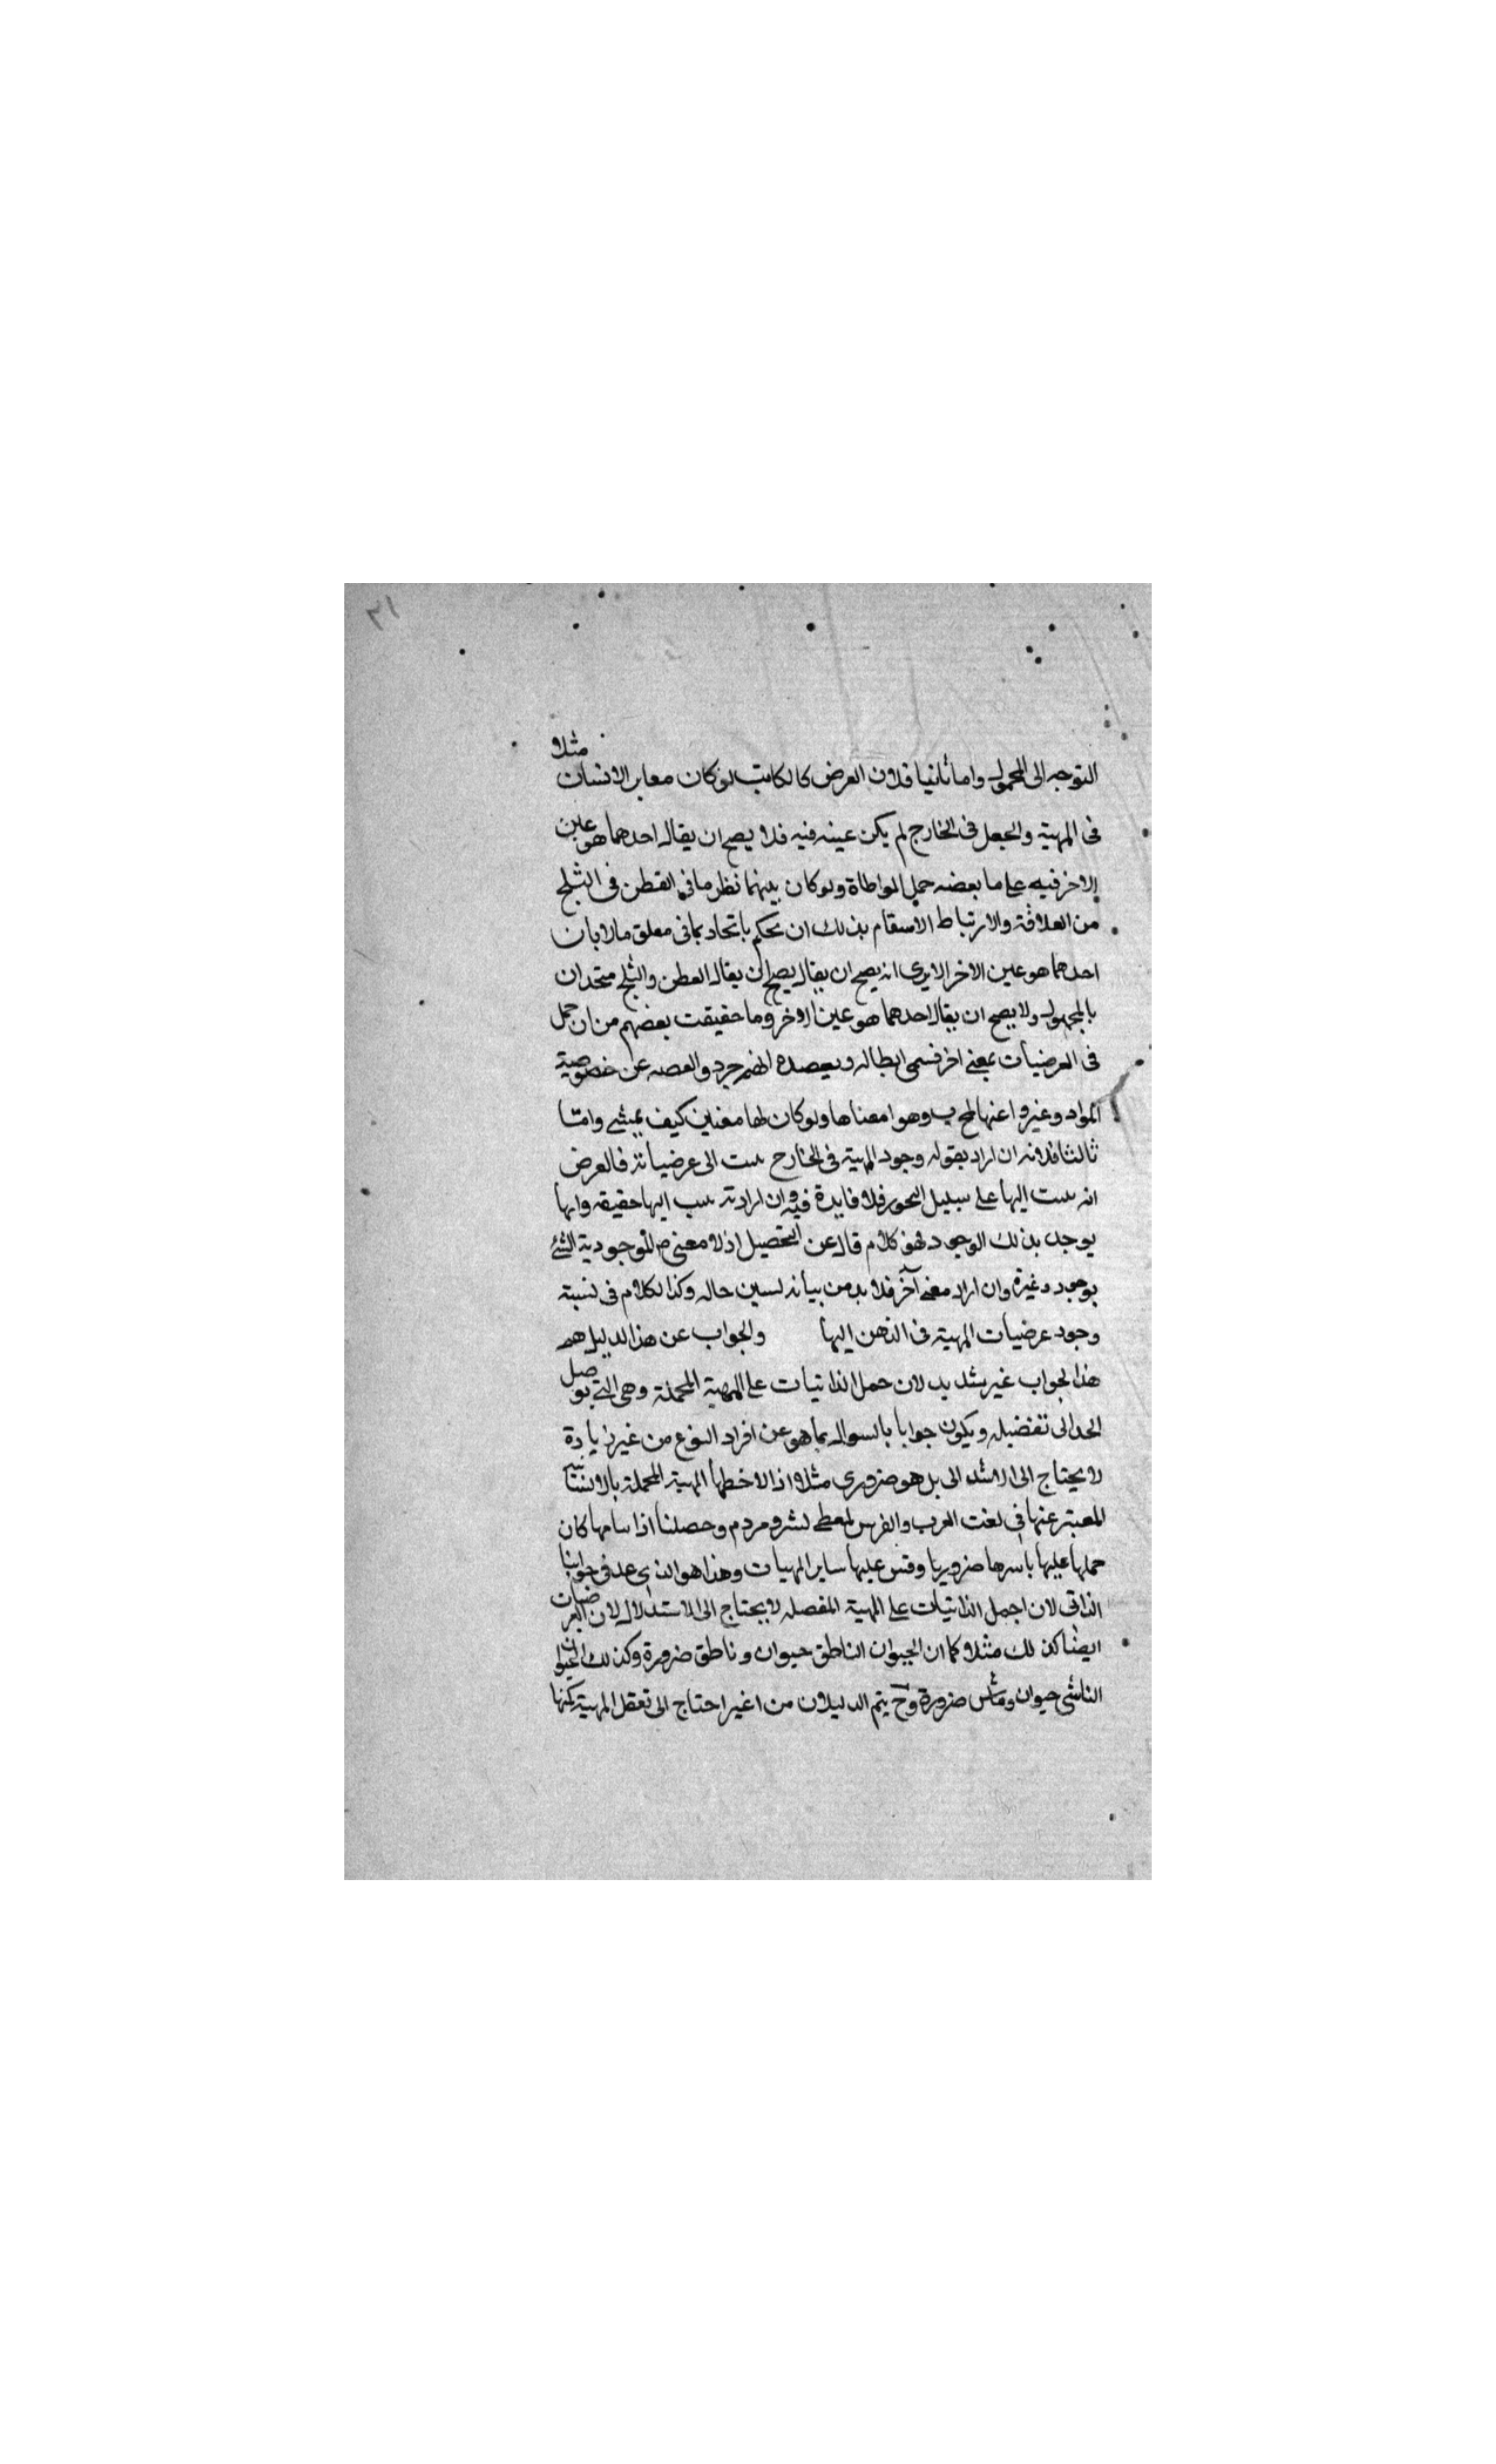 ٢١
التوجه الى المحمول واما ثانيا فلان العرض كالكاتب لو كان معاير الانسان مثلا
فى المهية والجعل فى الخارج لم يكن عينه فيه فلا يصح ان يقال احدهما هو عين
الاخر فيه على ما بعضه حمل المواطاة ولو كان بينهما نظر ما فى القطن فى الثلج
من العلاقة والارتباط الاسقام بذلك ان يحكم باتحاد بمانى معلق مالا بان
احدهما هو عين الاخر الا يرى انه يصح ان يقال يصح ان يقال العطن والثلج متحدان
بالمجهول ولا يصح ان يقال احدهما هو عين الاخر وما حقيقت بعضهم من ان حمل
فى العرضيات بمعنى اخر فسمى ابطاله ويعصده انهم جردوا العصه عن خصوصية
المواد وغيروا عنها لمح ب وهوا معناها ولو كان لها معنيين كيف يمشى وامتا
ثالثا فلانه ان اراد بقوله وجود المهية فى الخارج ست الى عرضياته فالعرض
انه ست اليها على سبيل التحور فلا فايدة فيه وان اراد ته سب اليها حقيقه وانها
يوجد بذلك الوجود فهو كلام قال عن التحصيل اذ لا معنى لموجودية الشئ
بوجود غيرة وان اراد معنى آخر فلا بد من بيانه لسين حاله وكذا لكلام فى نسبة
وجود عرضيات المهية فى الذهن اليها والجواب عن هذا الدليل هه
هذا لجواب غير شديد لان حمل الذاتيات على المهية المحملة وهى التى توصل
الحد الى تفضيله ويكون جوابا بالسوال بما هو عن افراد النوع من غير زيادة
لا يحتاج الى الاستدالى بل هو ضرورى مثلا اذ الاخطها المهية المحملة بالانسانية
المعبتر عنها فى لغت العرب والفرس لمعطى لشر ومردم وحصلنا اذا سامها كان
حملها عليها باسرها ضروريا وقس عليها ساير المهيات وهذا هو الذى عد فى جوابنا
الذاتى لان اجمل الذاتيات على المهية المفصله لا يحتاج الى الاستدلال لان العرضيات
ايضا كذلك مثلا كما ان الحيوان الناطق حيوان وناطق ضرورة وكذلك الحيوان
الناشى حيوان وماس ضرورة وح يتم الدليلان من اغير احتاج الى تعقل المهية بكنها